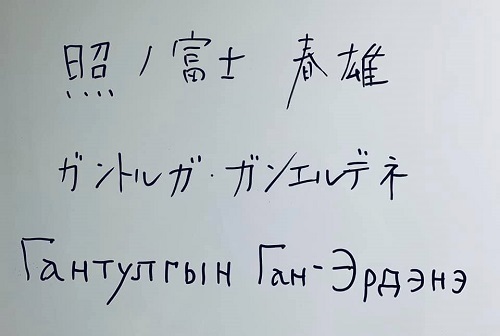 照ノ富士 春雄
ガントルガ・ガンエルデネ
Гантулгын Ган-Эрдэнэ